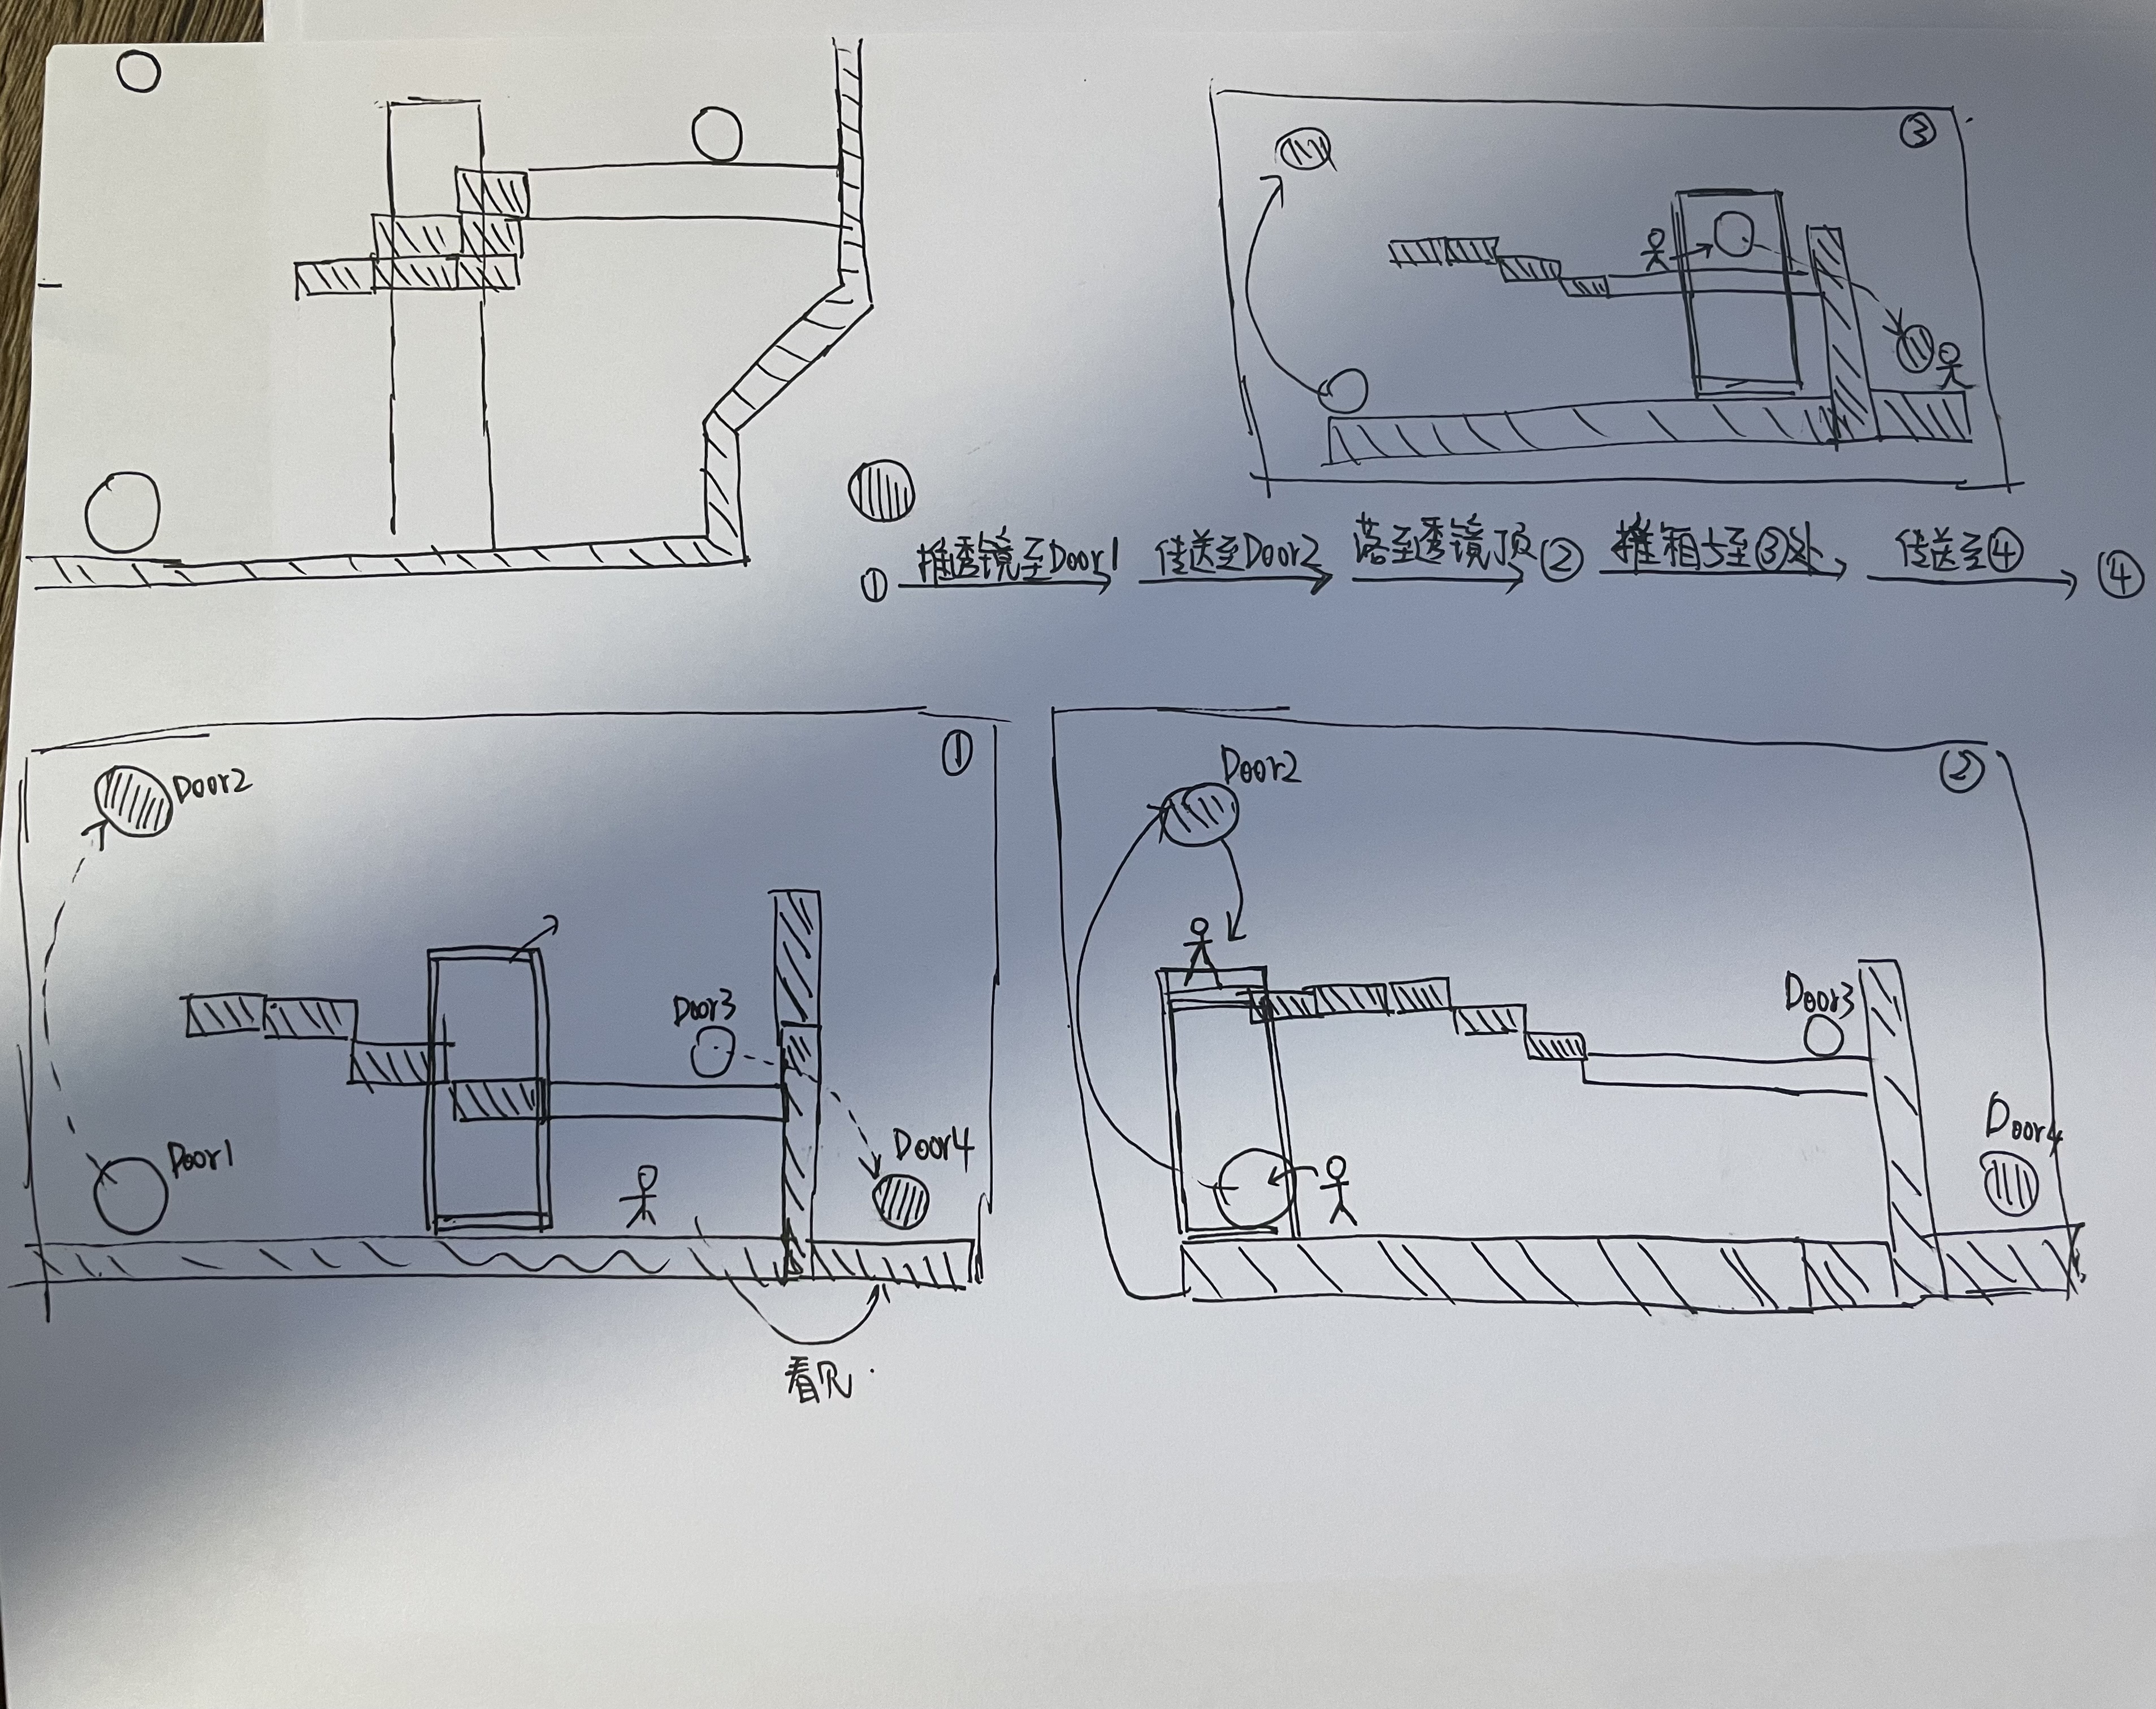 ③
① 推透镜至Door1 传送至Door2 落至透镜顶 ② 推箱与至③处 传送至④ ④
①
Door2
Door3
Door1
Door4
看见.
②
Door2
Door3
Door4